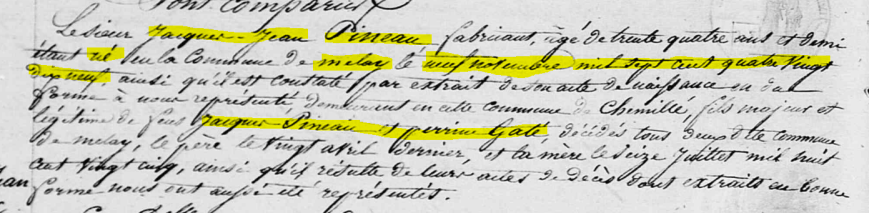 Sont comparus
Le sieur Jacques-Jean Pineau, fabricant, âgé de trente quatre ans et demi
étant né en la Commune de melay le neuf novembre mil sept cent quatre vingt
dix neuf, ainsi qu'il est constaté par extrait de son acte de naissance en due
forme à nous représenté, demeurant en cette commune de Chemillé, fils majeur et
légitime de feus Jacques Pineau et perrine Gaté, décédés tous deux dite commune
de melay, le père le vingt avril dernier, et la mère le seize Juillet mil huit
cent vingt cinq, ainsi qu'il résulte de leurs actes de décès dont extraits en bonne
forme nous ont aussi été représentés.